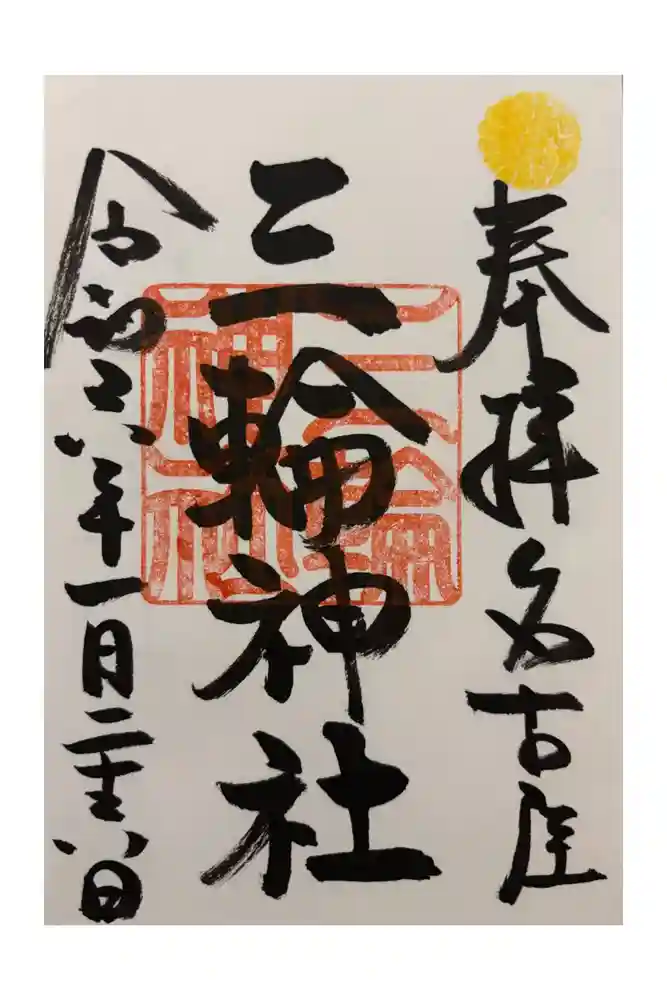 奉拝 名古屋
三輪神社
令和六年一月二十六日
三輪神社